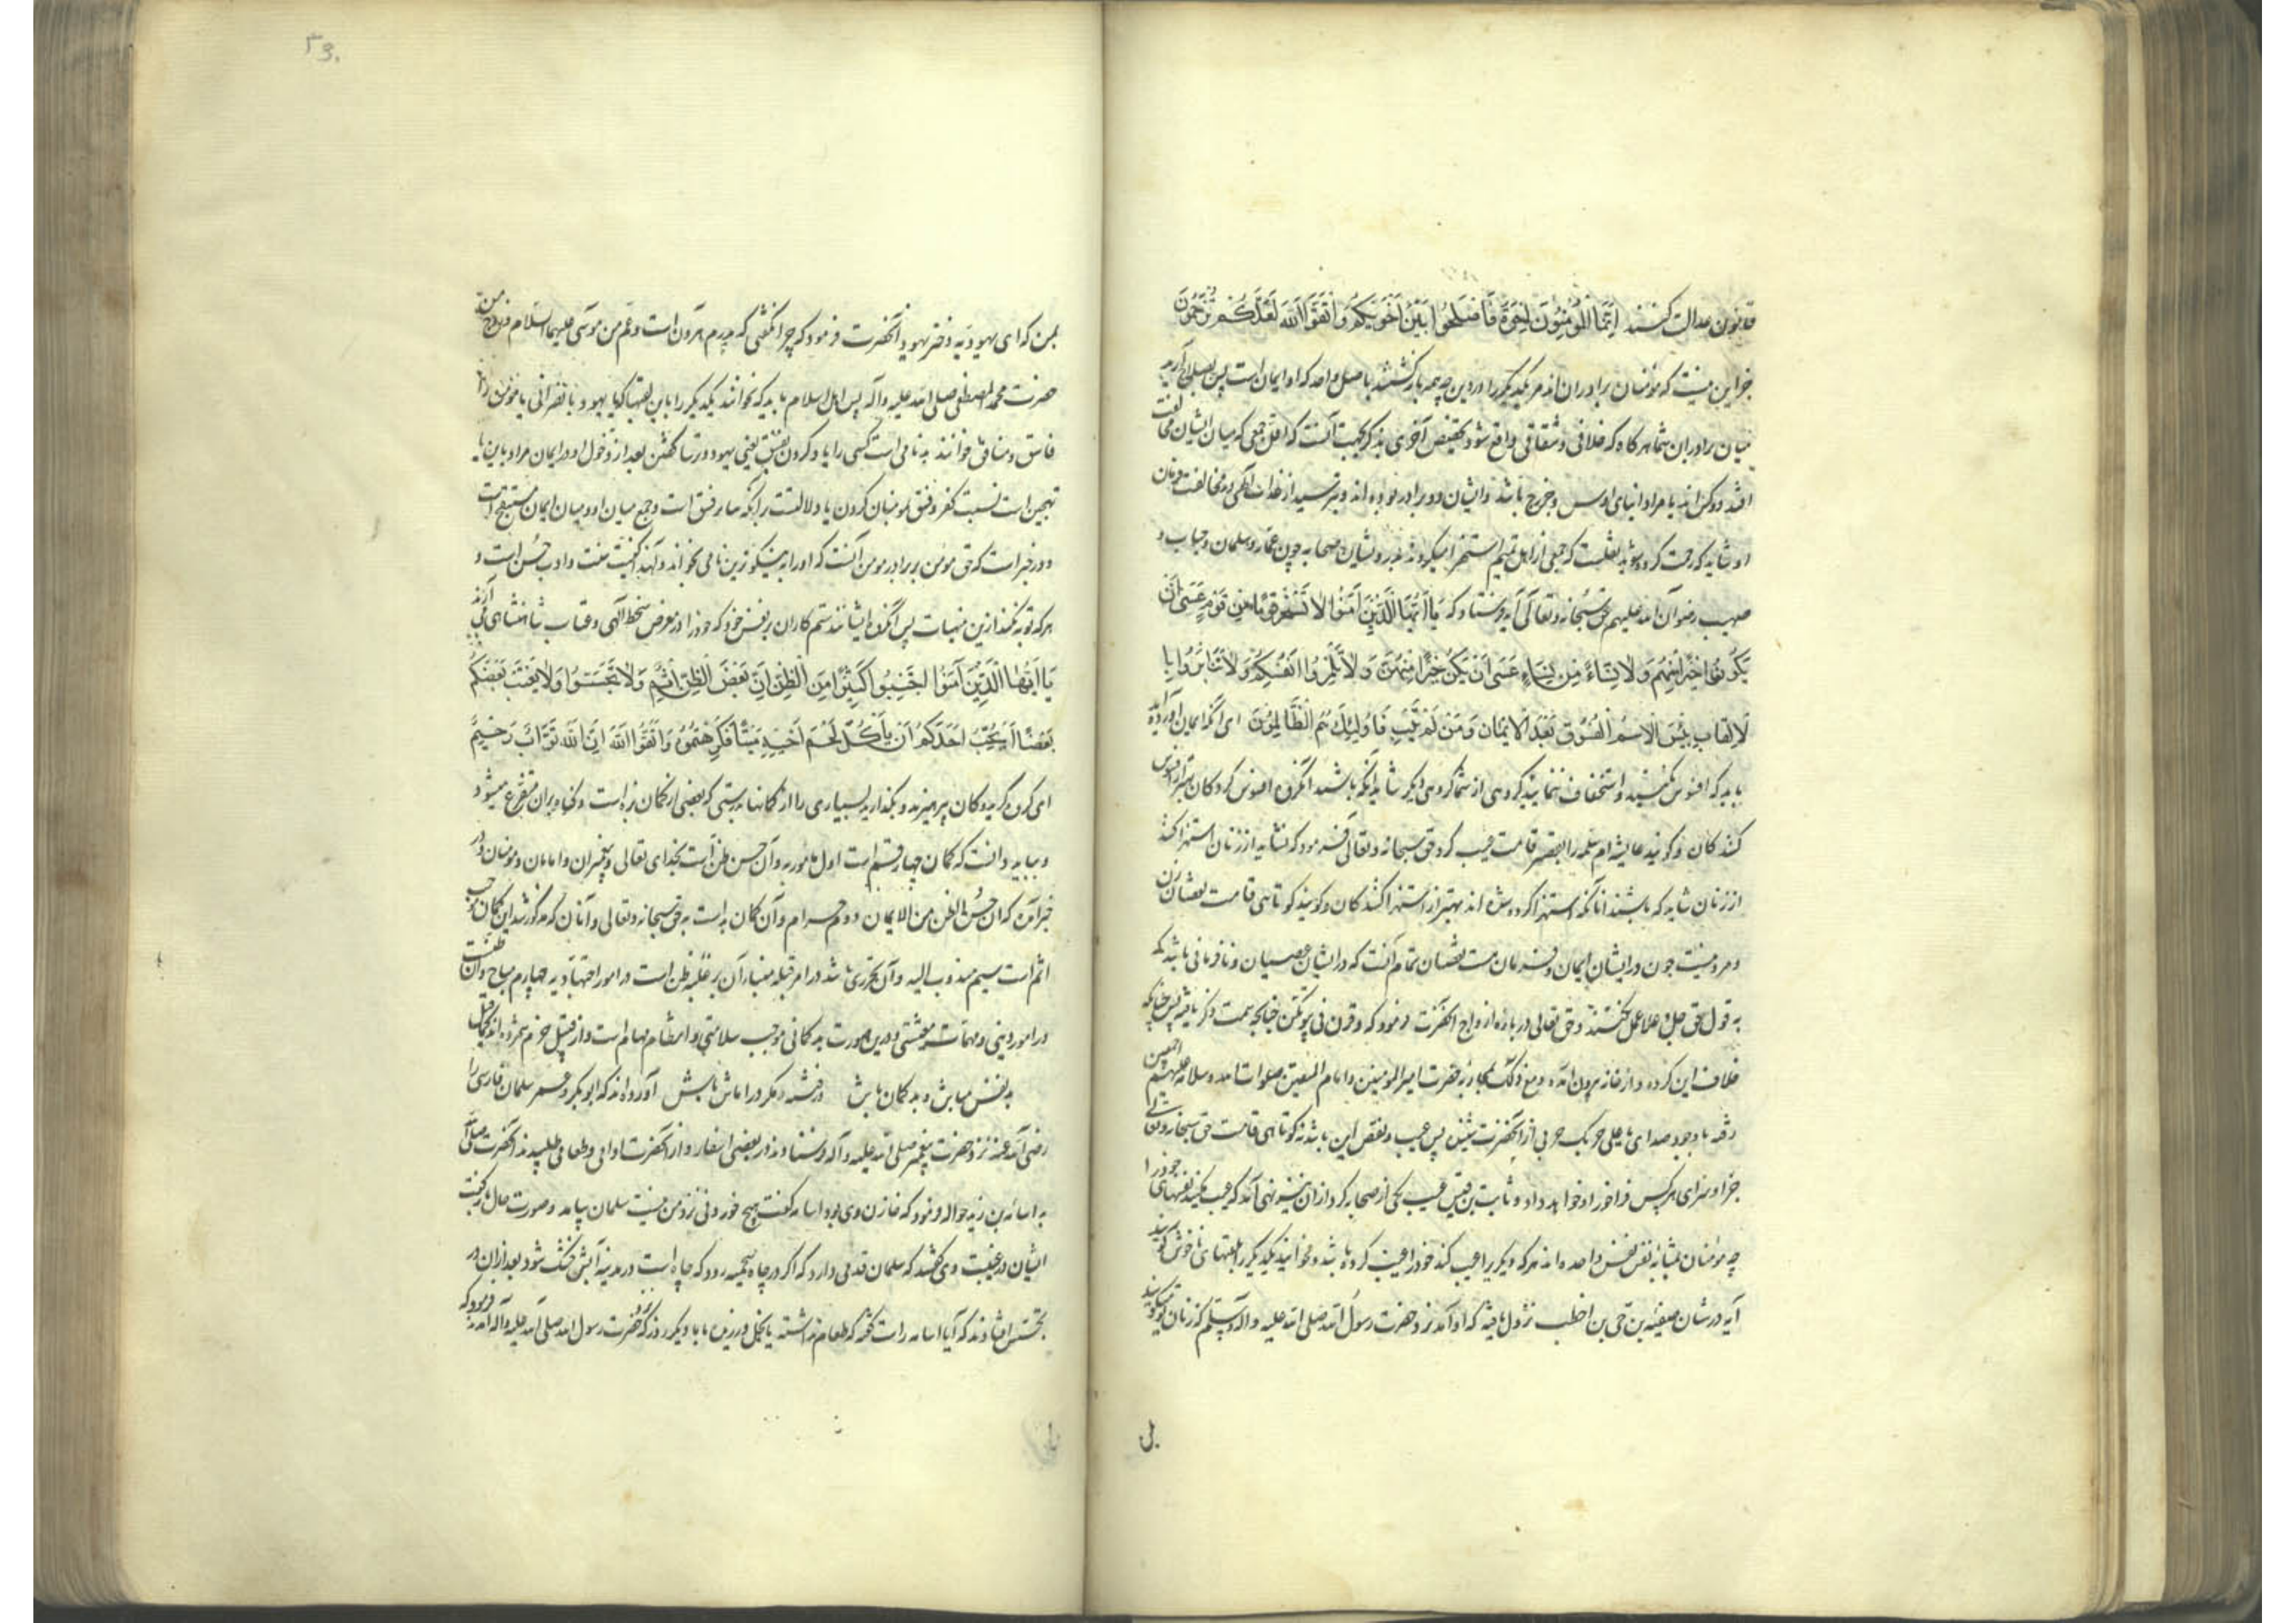 قانون عدالت کنند اِنَّمَا الْمُؤْمِنُونَ اِخْوَةٌ فَاَصْلِحُوا بَيْنَ اَخَوَيْكُمْ وَاتَّقُوا اللهَ لَعَلَّكُمْ تُرْحَمُونَ
جز این نیست که مؤمنان برادران اند مر یکدیگر را در دین چه همه بازگشتند باصل واحد که او ایمان است پس اصلاح آرید
میان برادران شما هرگاه که خلافی و شقاقی واقع شود تخصیص اخوی بذکر بجهت آنست که اقل جمعی که میان ایشان مخالفت
افتد دوکس اند یا مراد ابنای اوس و خزرج باشد و ایشان دو برادر بوده اند و بترسید از خدا در مخالفت فرمان
او شاید که رحمت کرده شوید نقلست که جمعی از اهل تمیم استهزا میکردند بدرویشان صحابه چون عمار و سلمان و خباب و
صهیب رضوان الله علیهم حق سبحانه و تعالی آیه فرستاد که يَا اَيُّهَا الَّذِينَ آمَنُوا لَا يَسْخَرْ قَوْمٌ مِنْ قَوْمٍ عَسَى اَنْ
يَكُونُوا خَيْرًا مِنْهُمْ وَلَا نِسَاءٌ مِنْ نِسَاءٍ عَسَى اَنْ يَكُنَّ خَيْرًا مِنْهُنَّ وَلَا تَلْمِزُوا اَنْفُسَكُمْ وَلَا تَنَابَزُوا بِا
لْاَلْقَابِ بِئْسَ الْاِسْمُ الْفُسُوقُ بَعْدَ الْاِيمَانِ وَمَنْ لَمْ يَتُبْ فَاُولٰئِكَ هُمُ الظَّالِمُونَ ای آنکه ایمان آورده اید
باید که افسوس نکنند و استخفاف ننمایند گروهی از شما گروهی دیگر شاید آنکه باشند آنگروه افسوس کردگان بهتر از افسوس
کنندگان و گویند عایشه ام سلمه را بقصر قامت عیب کرد حق سبحانه و تعالی فرمود که نشاید از زنان استهزا کنند
از زنان شاید که باشند آنانکه استهزا کرده شده اند بهتر از استهزا کنندگان و گویند کوتاهی قامت نقصان زن
و مرد نیست چون در ایشان ایمان و فرمان هست نقصان تمام آنست که در ایشان عصیان و نافرمانی باشد که
به قول حق جل و علا عمل نکنند و حق تعالی در باره ازواج آنحضرت فرمود که و قرن فی بیوتکن چنانچه سمت ذکر یافته پس چنانکه
خلاف این کرده و از خانه برون آمده و مع ذلک بمحاربه حضرت امیر المومنین و امام المتقین صلوات الله و سلامه علیهم اجمعین
رفته با وجود صدای یا علی حربک حربی از آنحضرت شنیده پس عیب و نقص این باشد نه کوتاهی قامت حق سبحانه و تعالی
جزا و سزای هر کس فراخور او خواهد داد و ثابت بن قیس عیب یکی از صحابه کرد از آن نیز نهی آمد که عیب مکنید نفسهای خود را
چه مؤمنان بمثابه نفس واحده اند هر که دیگر را عیب کند خود را عیب کرده باشد و مخوانید یکدیگر را بلقبهای ناخوش گویند
آیه در شان صفیه بن حی بن اخطب نزول یافته که او آمد نزد حضرت رسول الله صلی الله علیه و آله و سلم که زنان میگویند
بمن که ای یهودیه دختر یهود آنحضرت فرمود که چرا نگفتی که پدرم هارون است و عم من موسی علیهما السلام و زوج من
حضرت محمد المصطفی صلی الله علیه و آله پس اهل اسلام باید که نخوانند یکدیگر را باین لقبها که یا یهود یا نصرانی یا مؤمن را
فاسق و منافق خوانند بد نامی است کسی را یاد کردن بفسق یعنی یهود و ترسا گفتن بعد از دخول او در ایمان مراد باین یا
تهجین است نسبت کفر و فسق بمومنان کردن یا دلالتست برآنکه تنابز فسق است و جمع میان او و میان ایمان مستقبح است
و در خبر است که حق مومن بر برادر مومن آنست که او را به نیکوترین نامی بخواند و لهذا کنیت سنت و ادب حسن است و
هر که توبه نکند ازین منهیات پس آنگروه ایشانند ستم کاران بر نفس خود که خود را در معرض سخط الهی و عقاب پادشاهی می آرند
يَا اَيُّهَا الَّذِينَ آمَنُوا اجْتَنِبُوا كَثِيرًا مِنَ الظَّنِّ اِنَّ بَعْضَ الظَّنِّ اِثْمٌ وَلَا تَجَسَّسُوا وَلَا يَغْتَبْ بَعْضُكُمْ
بَعْضًا اَيُحِبُّ اَحَدُكُمْ اَنْ يَأْكُلَ لَحْمَ اَخِيهِ مَيْتًا فَكَرِهْتُمُوهُ وَاتَّقُوا اللهَ اِنَّ اللهَ تَوَّابٌ رَحِيمٌ
ای گروندگان بپرهیزید و بگذارید بسیاری را از گمانها بدرستی که بعضی از گمان بزه است و گناه بران متفرع میشود
و بباید دانست که گمان چهار قسم است اول مامور به و آن حسن ظن است بخدای تعالی و پیغمبران و امامان و مومنان و در
خبر آمده که ان حسن الظن من الایمان دوم حرام و آن گمان بد است به حق سبحانه و تعالی و آنان که مذکور شد این گمان موجب
اثم است سیم مندوب الیه و آن تحری باشد در امر قبله و بنای آن بر غلبه ظن است در امور اجتهادیه چهارم مباح و آن ظنیست
در امور دنیوی و مهمات معیشتی و درین صورت بد گمانی موجب سلامتی و انتظام مهام است و از قبیل حزم شمرده اند کما قیل
بد نفس مباش و بد گمان باش وز فتنه و مکر در امان باش آورده اند که ابوبکر و عمر سلمان فارسی را
رضی الله عنه نزد حضرت پیغمبر صلی الله علیه و آله فرستادند در بعضی اسفار و از آنحضرت اوانی و طعامی طلبیدند آنحضرت صلی الله
به اسامه بن زید حواله فرمود که خازن وی بود اسامه گفت هیچ خوردنی نزد من نیست سلمان بیامد و صورت حال باز گفت
ایشان در غیبت وی گفتند که سلمان قدمی دارد که اگر در چاه سمیحه رود که چاه است در مدینه آبش خشک شود بعد ازان در
تجسس افتادند که آیا اسامه راست گفته که طعام نداشته یا بخل ورزیده با ما دیگر روز که حضرت رسول الله صلی الله علیه و آله آمدند فرمود که